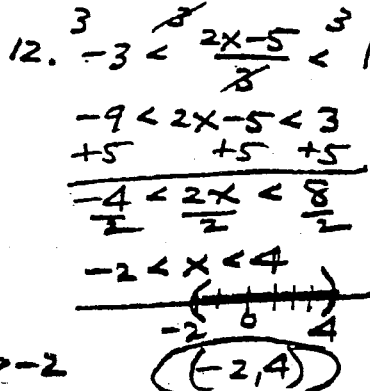 3 3 3
12. -3 < 2x-5/3 < 1
-9 < 2x-5 < 3
+5 +5 +5
-4/2 < 2x/2 < 8/2
-2 < x < 4
( )
-2 0 4
>-2 (-2,4)